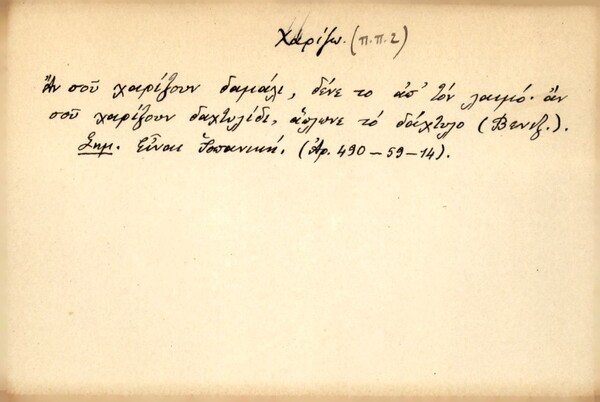 Χαρίζω. (π.π.2)
Ἄν σοῦ χαρίζουν δαμάλι, δένε το ἀπ' τόν λαιμό· ἄν
σοῦ χαρίζουν δαχτυλίδι, ἅπλωνε τό δάχτυλο (Βενιζ.).
Σημ. Εἶναι Ἱσπανική. (Ἀρ. 490-59-14).